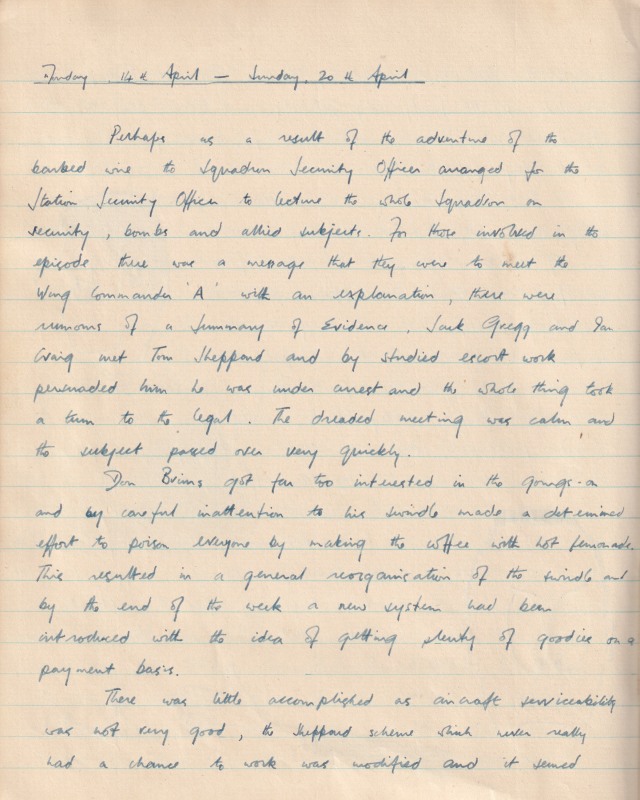 Monday, 14th April — Sunday, 20th April
Perhaps as a result of the adventure of the
barbed wire the Squadron Security Officer arranged for the
Station Security Officer to lecture the whole Squadron on
security, bombs and allied subjects. For those involved in the
episode there was a message that they were to meet the
Wing Commander 'A' with an explanation, there were
rumours of a Summary of Evidence. Jack Gregg and Ian
Craig met Tom Sheppard and by studied escort work
persuaded him he was under arrest and the whole thing took
a turn to the legal. The dreaded meeting was calm and
the subject passed over very quickly.
Don Brims got far too interested in the goings-on
and by careful inattention to his swindle made a determined
effort to poison everyone by making the coffee with hot lemonade.
This resulted in a general reorganisation of the swindle and
by the end of the week a new system had been
introduced with the idea of getting plenty of goodies on a
payment basis.
There was little accomplished as aircraft serviceability
was not very good, the Sheppard scheme which never really
had a chance to work was modified and it seemed